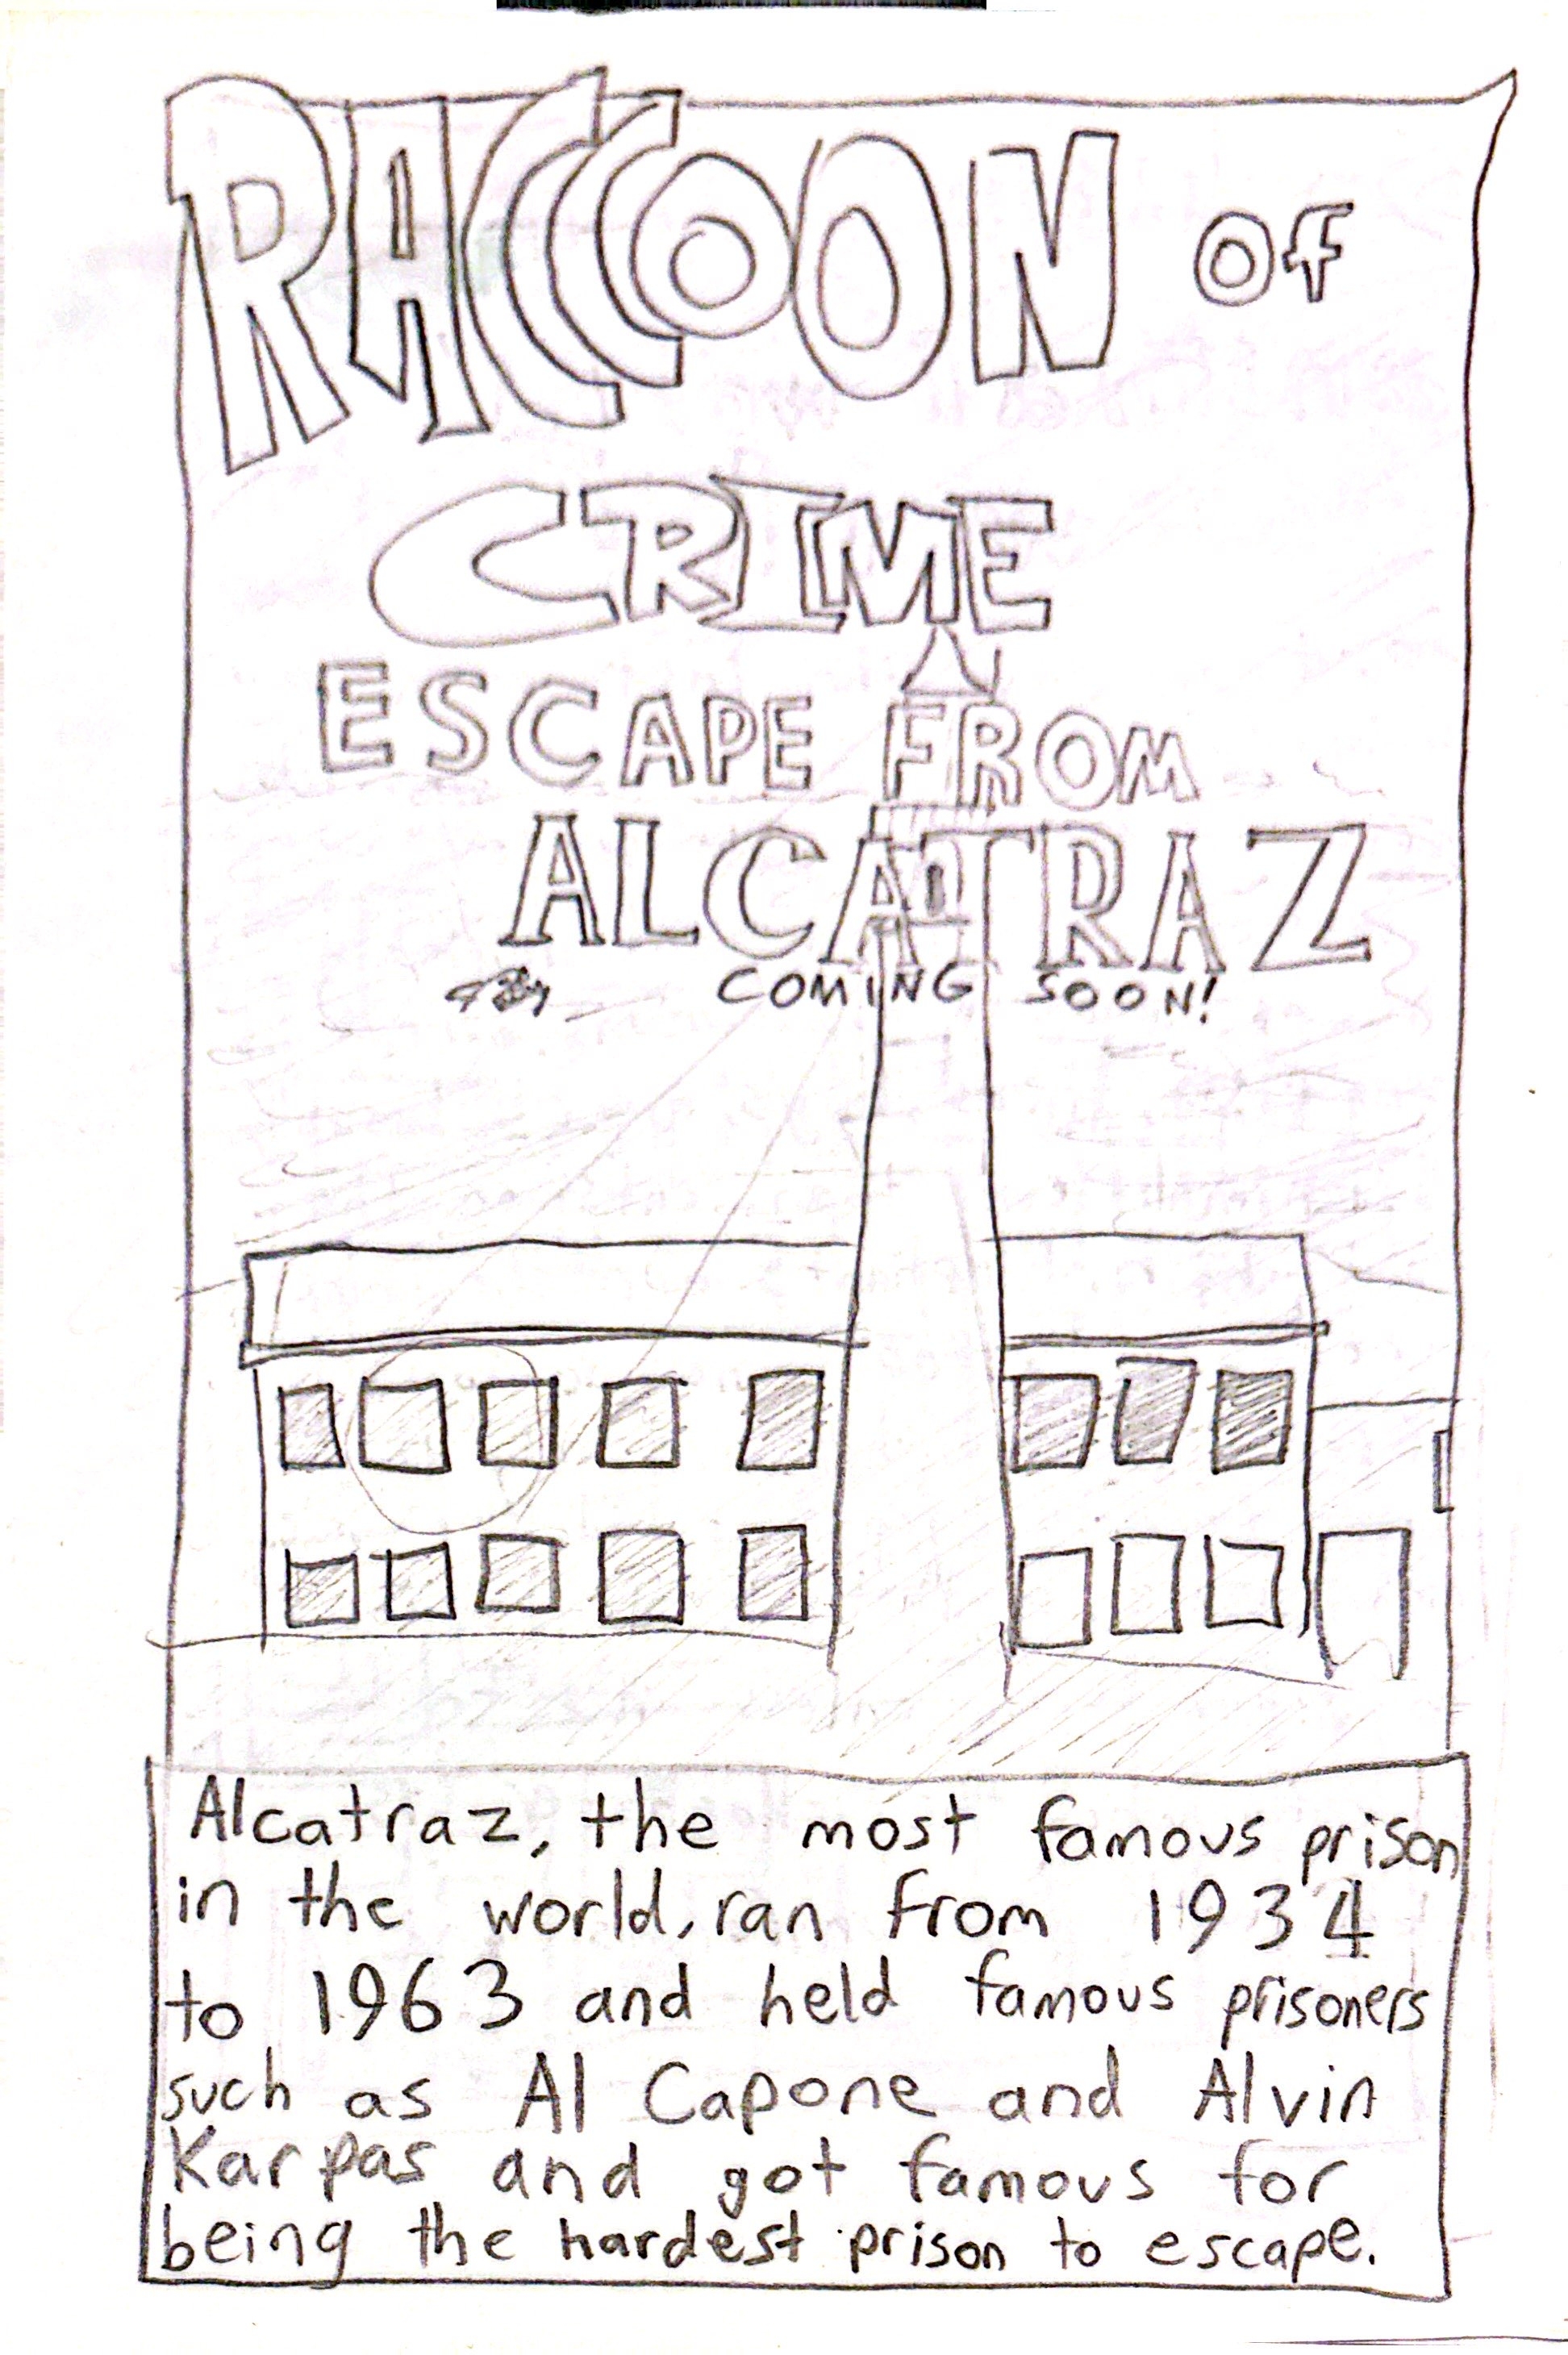 RACCOON OF
CRIME
ESCAPE FROM
ALCATRAZ
COMING SOON!
Alcatraz, the most famous prison
in the world, ran from 1934
to 1963 and held famous prisoners
such as Al Capone and Alvin
Karpas and got famous for
being the hardest prison to escape.